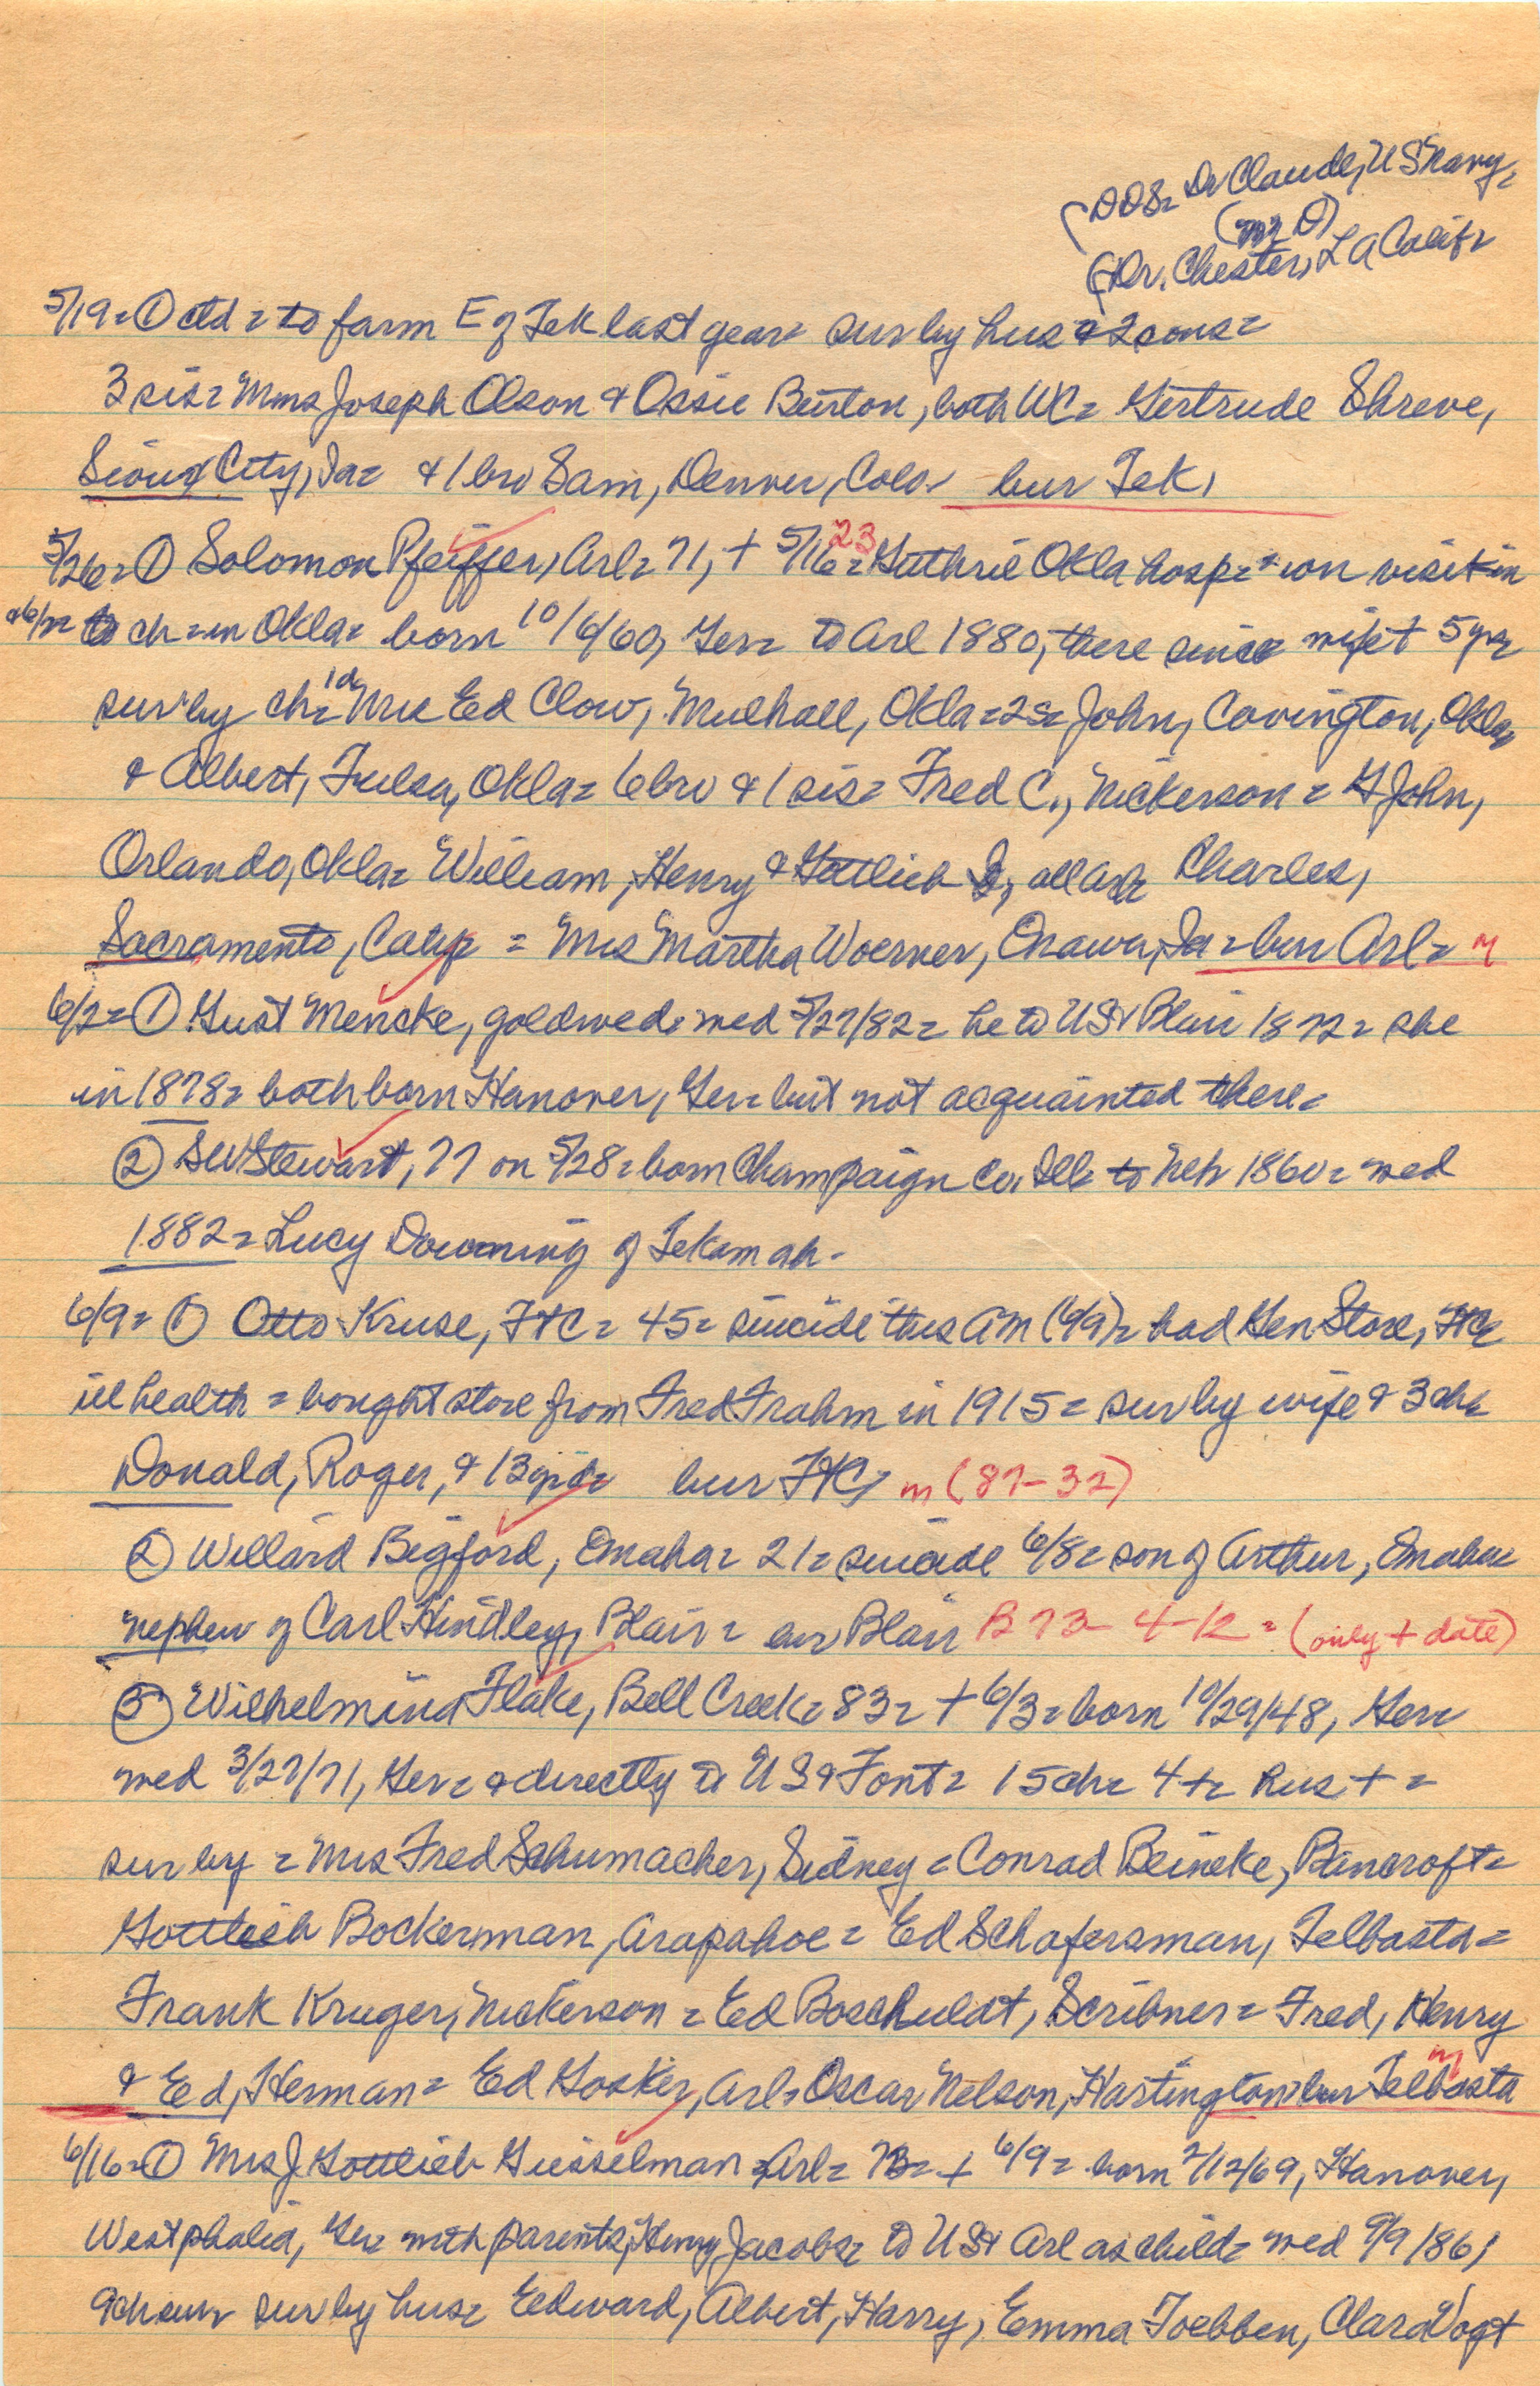 (DDS= Dr Claude, US Navy=
(m D)
(Dr. Chester, LA Calif=
5/19=① ctd = to farm E of Tek last year= sur by hus & 2 sons=
3 sis= Mms Joseph Olson & Ossie Burton, both WC= Gertrude Shreve,
Sioux City, Ia= & 1 bro Sam, Denver, Colo. bur Tek,
5/26=① Solomon Pfeiffer, Arl= 71, + 5/16= 23 Guthrie Okla hosp= on visit in
& 6/2= to ch= in Okla= born 10/6/60, Ger= to Arl 1880, there since wife + 5 yrs
sur by ch= 1d Mrs Ed Clow, Mulhall, Okla= 2s= John, Covington, Okla
& Albert, Tulsa, Okla= 6 bro & 1 sis= Fred C., Nickerson = G John,
Orlando, Okla= William, Henry & Gottlieb, all Arl= Charles,
Sacramento, Calif= = Mrs Martha Woerner, Onawa, Ia= bur Arl= m
6/2=① Gust Mencke, gold wed= med 5/27/82= he to US& Blair 1872= she
in 1878= both born Hanover, Ger= but not acquainted there=
② SW Stewart, 77 on 5/28= born Champaign Co. Ill= to Neb 1860= med
1882= Lucy Downing of Tekamah.
6/9=① Otto Kruse, FtC= 45= suicide this AM (6/9)= had Gen Store, FtC=
ill health = bought store from Fred Frahm in 1915= sur by wife & 3 ch=
Donald, Roger, & 13 yr d= bur FtC, m (87-32)
② Willard Bigford, Omaha= 21= suicide 6/8= son of Arthur, Omaha=
nephew of Carl Hindley, Blair= bur Blair B 73- 4-12= (only + date)
③ Wilhelmina Flake, Bell Creek= 83= + 6/3= born 10/29/48, Ger=
med 3/27/71, Ger= & directly to US & Font= 15 ch= 4+= hus + =
sur by = Mrs Fred Schumacher, Sidney = Conrad Beineke, Bancroft=
Gottlieb Bockerman, Arapahoe = Ed Schafersman, Telbasta=
Frank Kruger, Nickerson = Ed Boschuldt, Scribner= Fred, Henry
& Ed, Herman= Ed Gosker, Arl= Oscar Nelson, Hartington= bur Telbasta m
6/16=① Mrs J Gottlieb Giesselman= Arl= + 6/9= born 2/12/69, Hanover,
Westphalia, Ger= with parents, Henry Jacobs= to US& Arl as child= med 9/9/86,
9 ch sur sur by hus= Edward, Albert, Harry, Emma Toebben, Clara Vogt